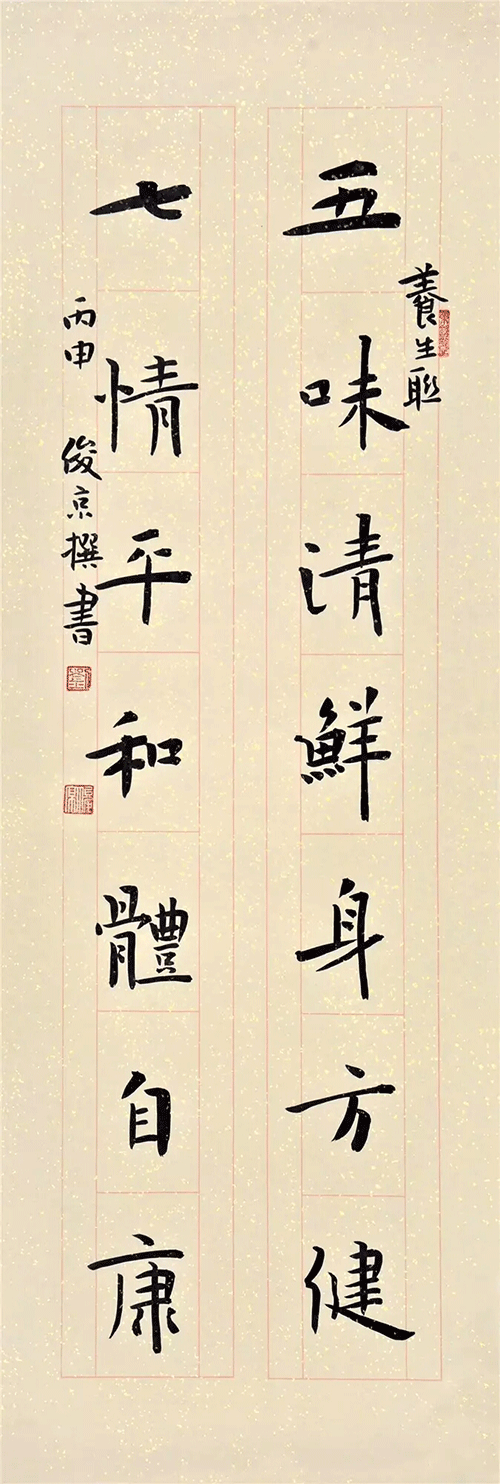 養生联
五味清鮮身方健
七情平和體自康
丙申 俊京撰書